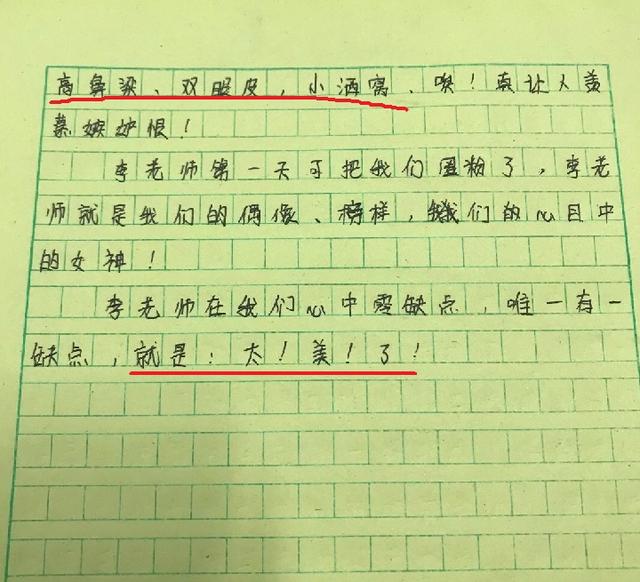 高鼻梁、双眼皮，小酒窝、噢！真让人羡
慕嫉妒恨！
李老师第一天可把我们圈粉了，李老
师就是我们的偶像、榜样，我们的心目中
的女神！
李老师在我们心中零缺点，唯一有一
缺点，就是：太！美！了！